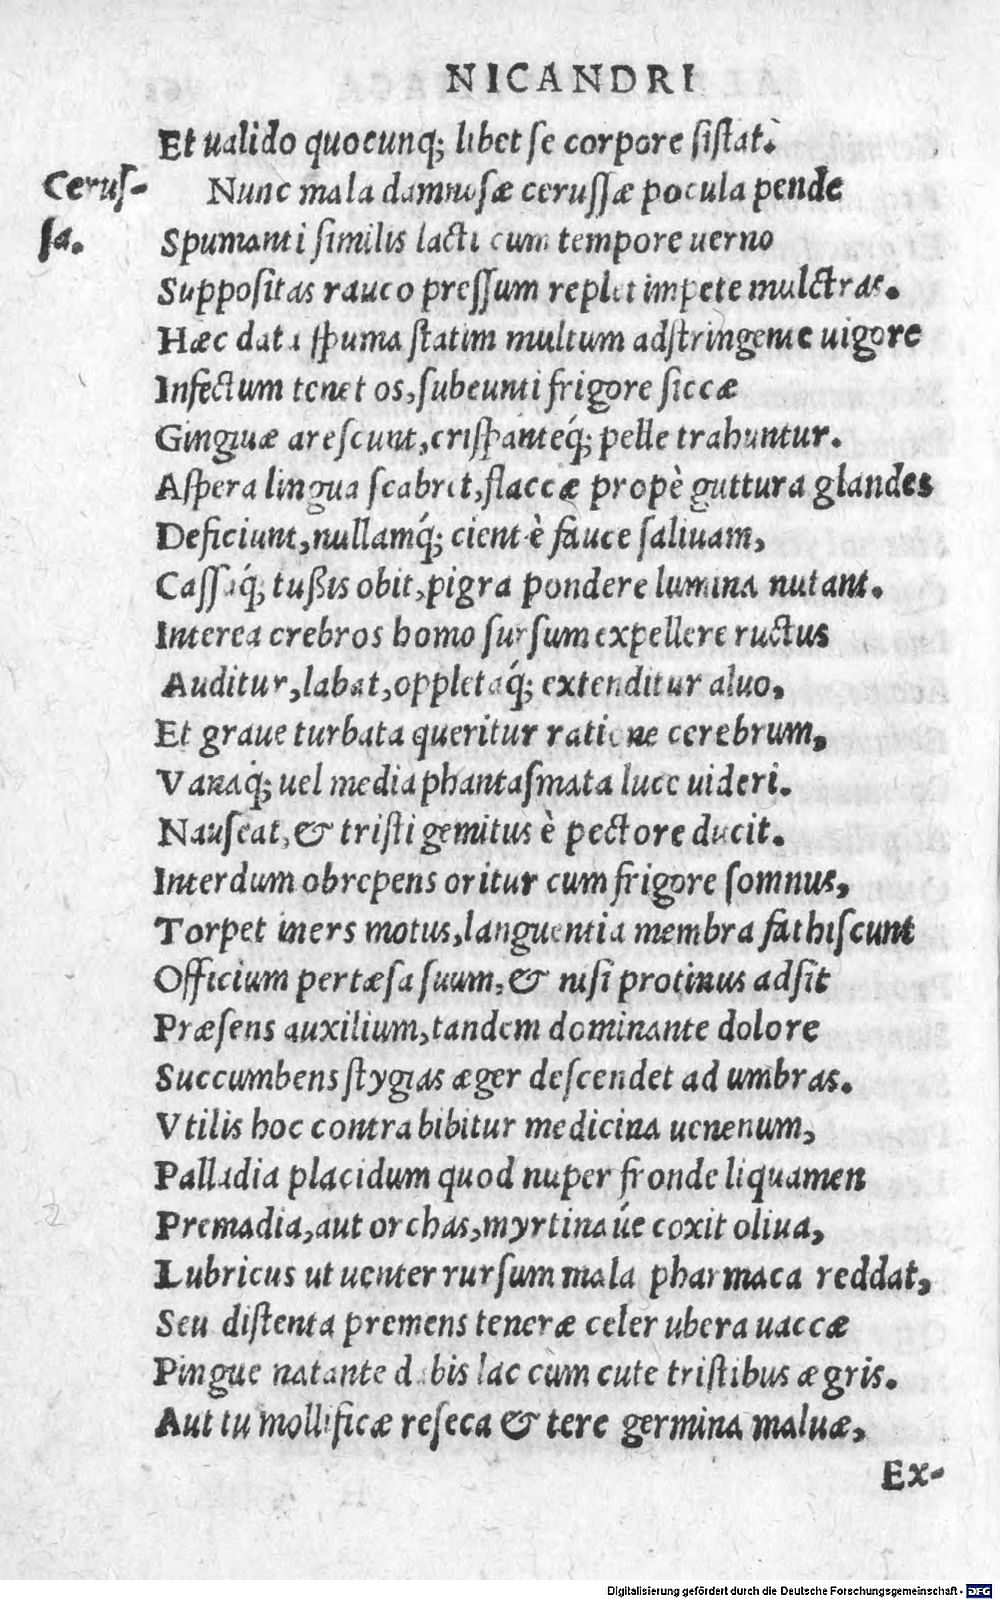 NICANDRI
Et ualido quocunq; libet se corpore sistat.
Cerus-
sa.
Nunc mala damnosæ cerussæ pocula pende
Spumanti similis lacti cum tempore uerno
Suppositas rauco pressum replet impete mulctras.
Hæc data spuma statim multum adstringente uigore
Infectum tenet os, subeunti frigore siccæ
Gingiuæ arescunt, crispanteq́; pelle trahuntur.
Aspera lingua scabret, flaccæ propè guttura glandes
Deficiunt, nullamq́; cient è fauce saliuam,
Cassaq́; tußis obit, pigra pondere lumina nutant.
Interea crebros homo sursum expellere ructus
Auditur, labat, oppletaq́; extenditur aluo,
Et graue turbata queritur ratione cerebrum,
Vanaq́; uel media phantasmata luce uideri.
Nauseat, & tristi gemitus è pectore ducit.
Interdum obrepens oritur cum frigore somnus,
Torpet iners motus, languentia membra fathiscunt
Officium pertæsa suum, & nisi protinus adsit
Præsens auxilium, tandem dominante dolore
Succumbens stygias æger descendet ad umbras.
Vtilis hoc contra bibitur medicina uenenum,
Palladia placidum quod nuper fronde liquamen
Premadia, aut orchas, myrtina úe coxit oliua,
Lubricus ut uenter rursum mala pharmaca reddat,
Seu distenta premens teneræ celer ubera uaccæ
Pingue natante dabis lac cum cute tristibus ægris.
Aut tu mollificæ reseca & tere germina maluæ,
Ex-
Digitalisierung gefördert durch die Deutsche Forschungsgemeinschaft - DFG